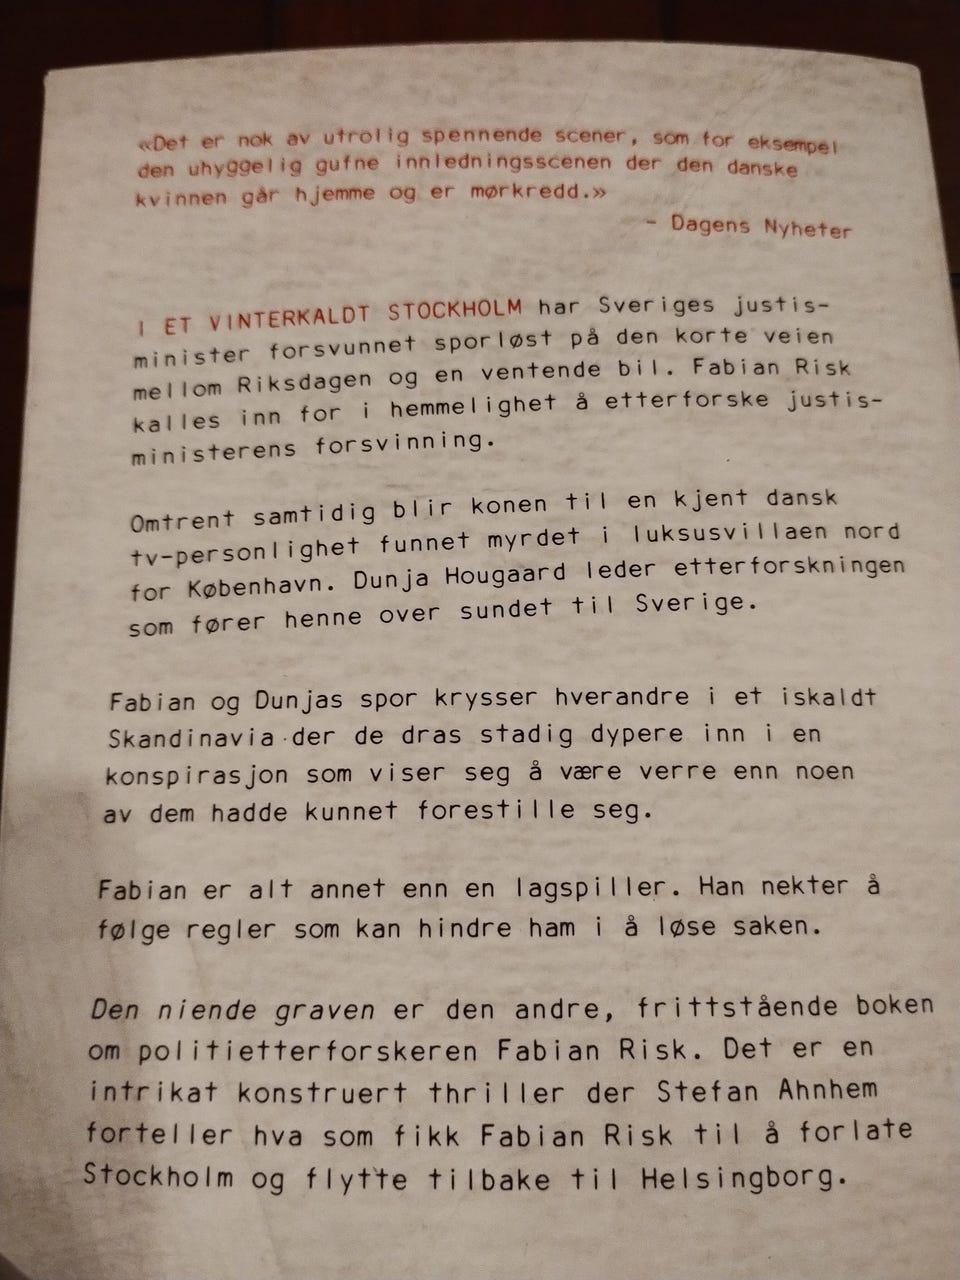 «Det er nok av utrolig spennende scener, som for eksempel
den uhyggelig gufne innledningsscenen der den danske
kvinnen går hjemme og er mørkredd.»
– Dagens Nyheter
I ET VINTERKALDT STOCKHOLM har Sveriges justis-
minister forsvunnet sporløst på den korte veien
mellom Riksdagen og en ventende bil. Fabian Risk
kalles inn for i hemmelighet å etterforske justis-
ministerens forsvinning.
Omtrent samtidig blir konen til en kjent dansk
tv-personlighet funnet myrdet i luksusvillaen nord
for København. Dunja Hougaard leder etterforskningen
som fører henne over sundet til Sverige.
Fabian og Dunjas spor krysser hverandre i et iskaldt
Skandinavia der de dras stadig dypere inn i en
konspirasjon som viser seg å være verre enn noen
av dem hadde kunnet forestille seg.
Fabian er alt annet enn en lagspiller. Han nekter å
følge regler som kan hindre ham i å løse saken.
Den niende graven er den andre, frittstående boken
om politietterforskeren Fabian Risk. Det er en
intrikat konstruert thriller der Stefan Ahnhem
forteller hva som fikk Fabian Risk til å forlate
Stockholm og flytte tilbake til Helsingborg.